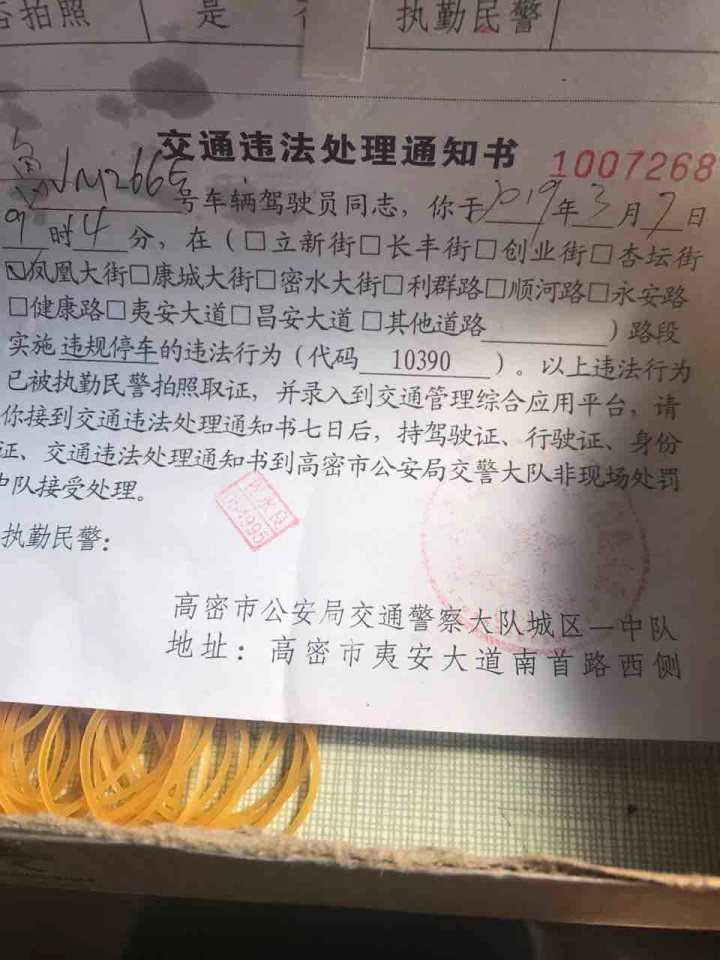 拍照 是 执勤民警
交通违法处理通知书 1007268
鲁VM2665号车辆驾驶员同志，你于2019年3月7日
9时4分，在（□立新街□长丰街□创业街□杏坛街
☑凤凰大街□康城大街□密水大街□利群路□顺河路□永安路
□健康路□夷安大道□昌安大道□其他道路 ）路段
实施违规停车的违法行为（代码 10390 ）。以上违法行为
已被执勤民警拍照取证，并录入到交通管理综合应用平台，请
你接到交通违法处理通知书七日后，持驾驶证、行驶证、身份
证、交通违法处理通知书到高密市公安局交警大队非现场处罚
中队接受处理。
执勤民警：
高密市公安局交通警察大队城区一中队
地址：高密市夷安大道南首路西侧